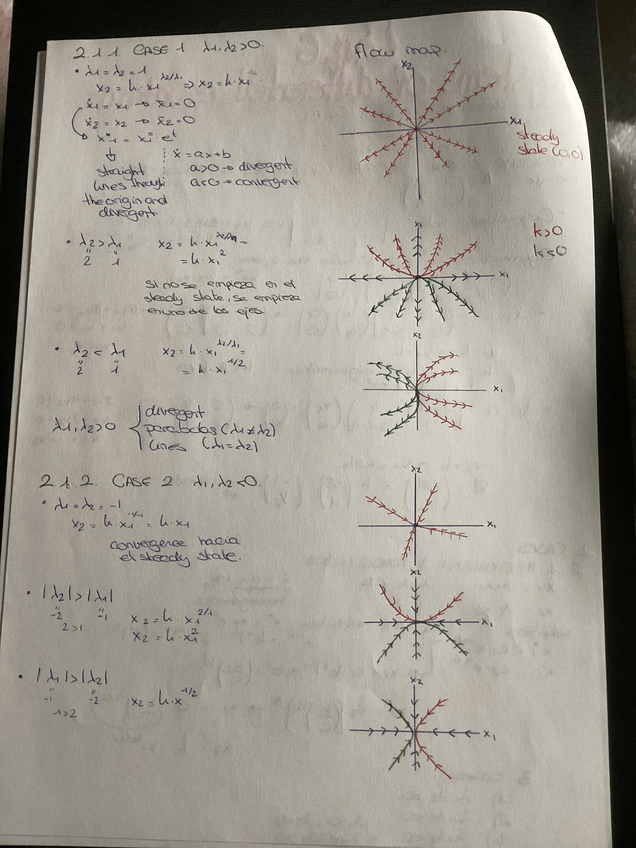 2.1.1. CASE 1 λ1, λ2 > 0.
Flow map.
• λ1 = λ2 = 1
x2 = h · x1^λ2/λ1 ⇒ x2 = h · x1
ẋ1 = x1 → x̄1 = 0
ẋ2 = x2 → x̄2 = 0
x1 = x1° e^t
straight
lines through
the origin and
divergent
ẋ = ax + b
a > 0 → divergent
a < 0 → convergent
x2
x1
steady
state (0,0)
• λ2 > λ1
2 1
x2 = h · x1^λ2/λ1 =
= h · x1^2
si no se empieza en el
steady state, se empieza
en uno de los ejes.
x1
x1
k > 0
k < 0
• λ2 < λ1
2 1
x2 = h · x1^λ2/λ1 =
= h · x1^1/2
x2
x1
λ1, λ2 > 0 { divergent
parabolas (λ1 ≠ λ2)
lines (λ1 = λ2)
2.1.2. CASE 2. λ1, λ2 < 0.
• λ1 = λ2 = -1
x2 = h · x1^-1/-1 = h · x1
convergence hacia
el steady state.
x2
x1
• |λ2| > |λ1|
-2 -1
2 > 1
x2 = h · x1^2/1
x2 = h · x1^2
x2
x1
• |λ1| > |λ2|
-1 -2
1 > 2
x2 = h · x^1/2
x2
x1